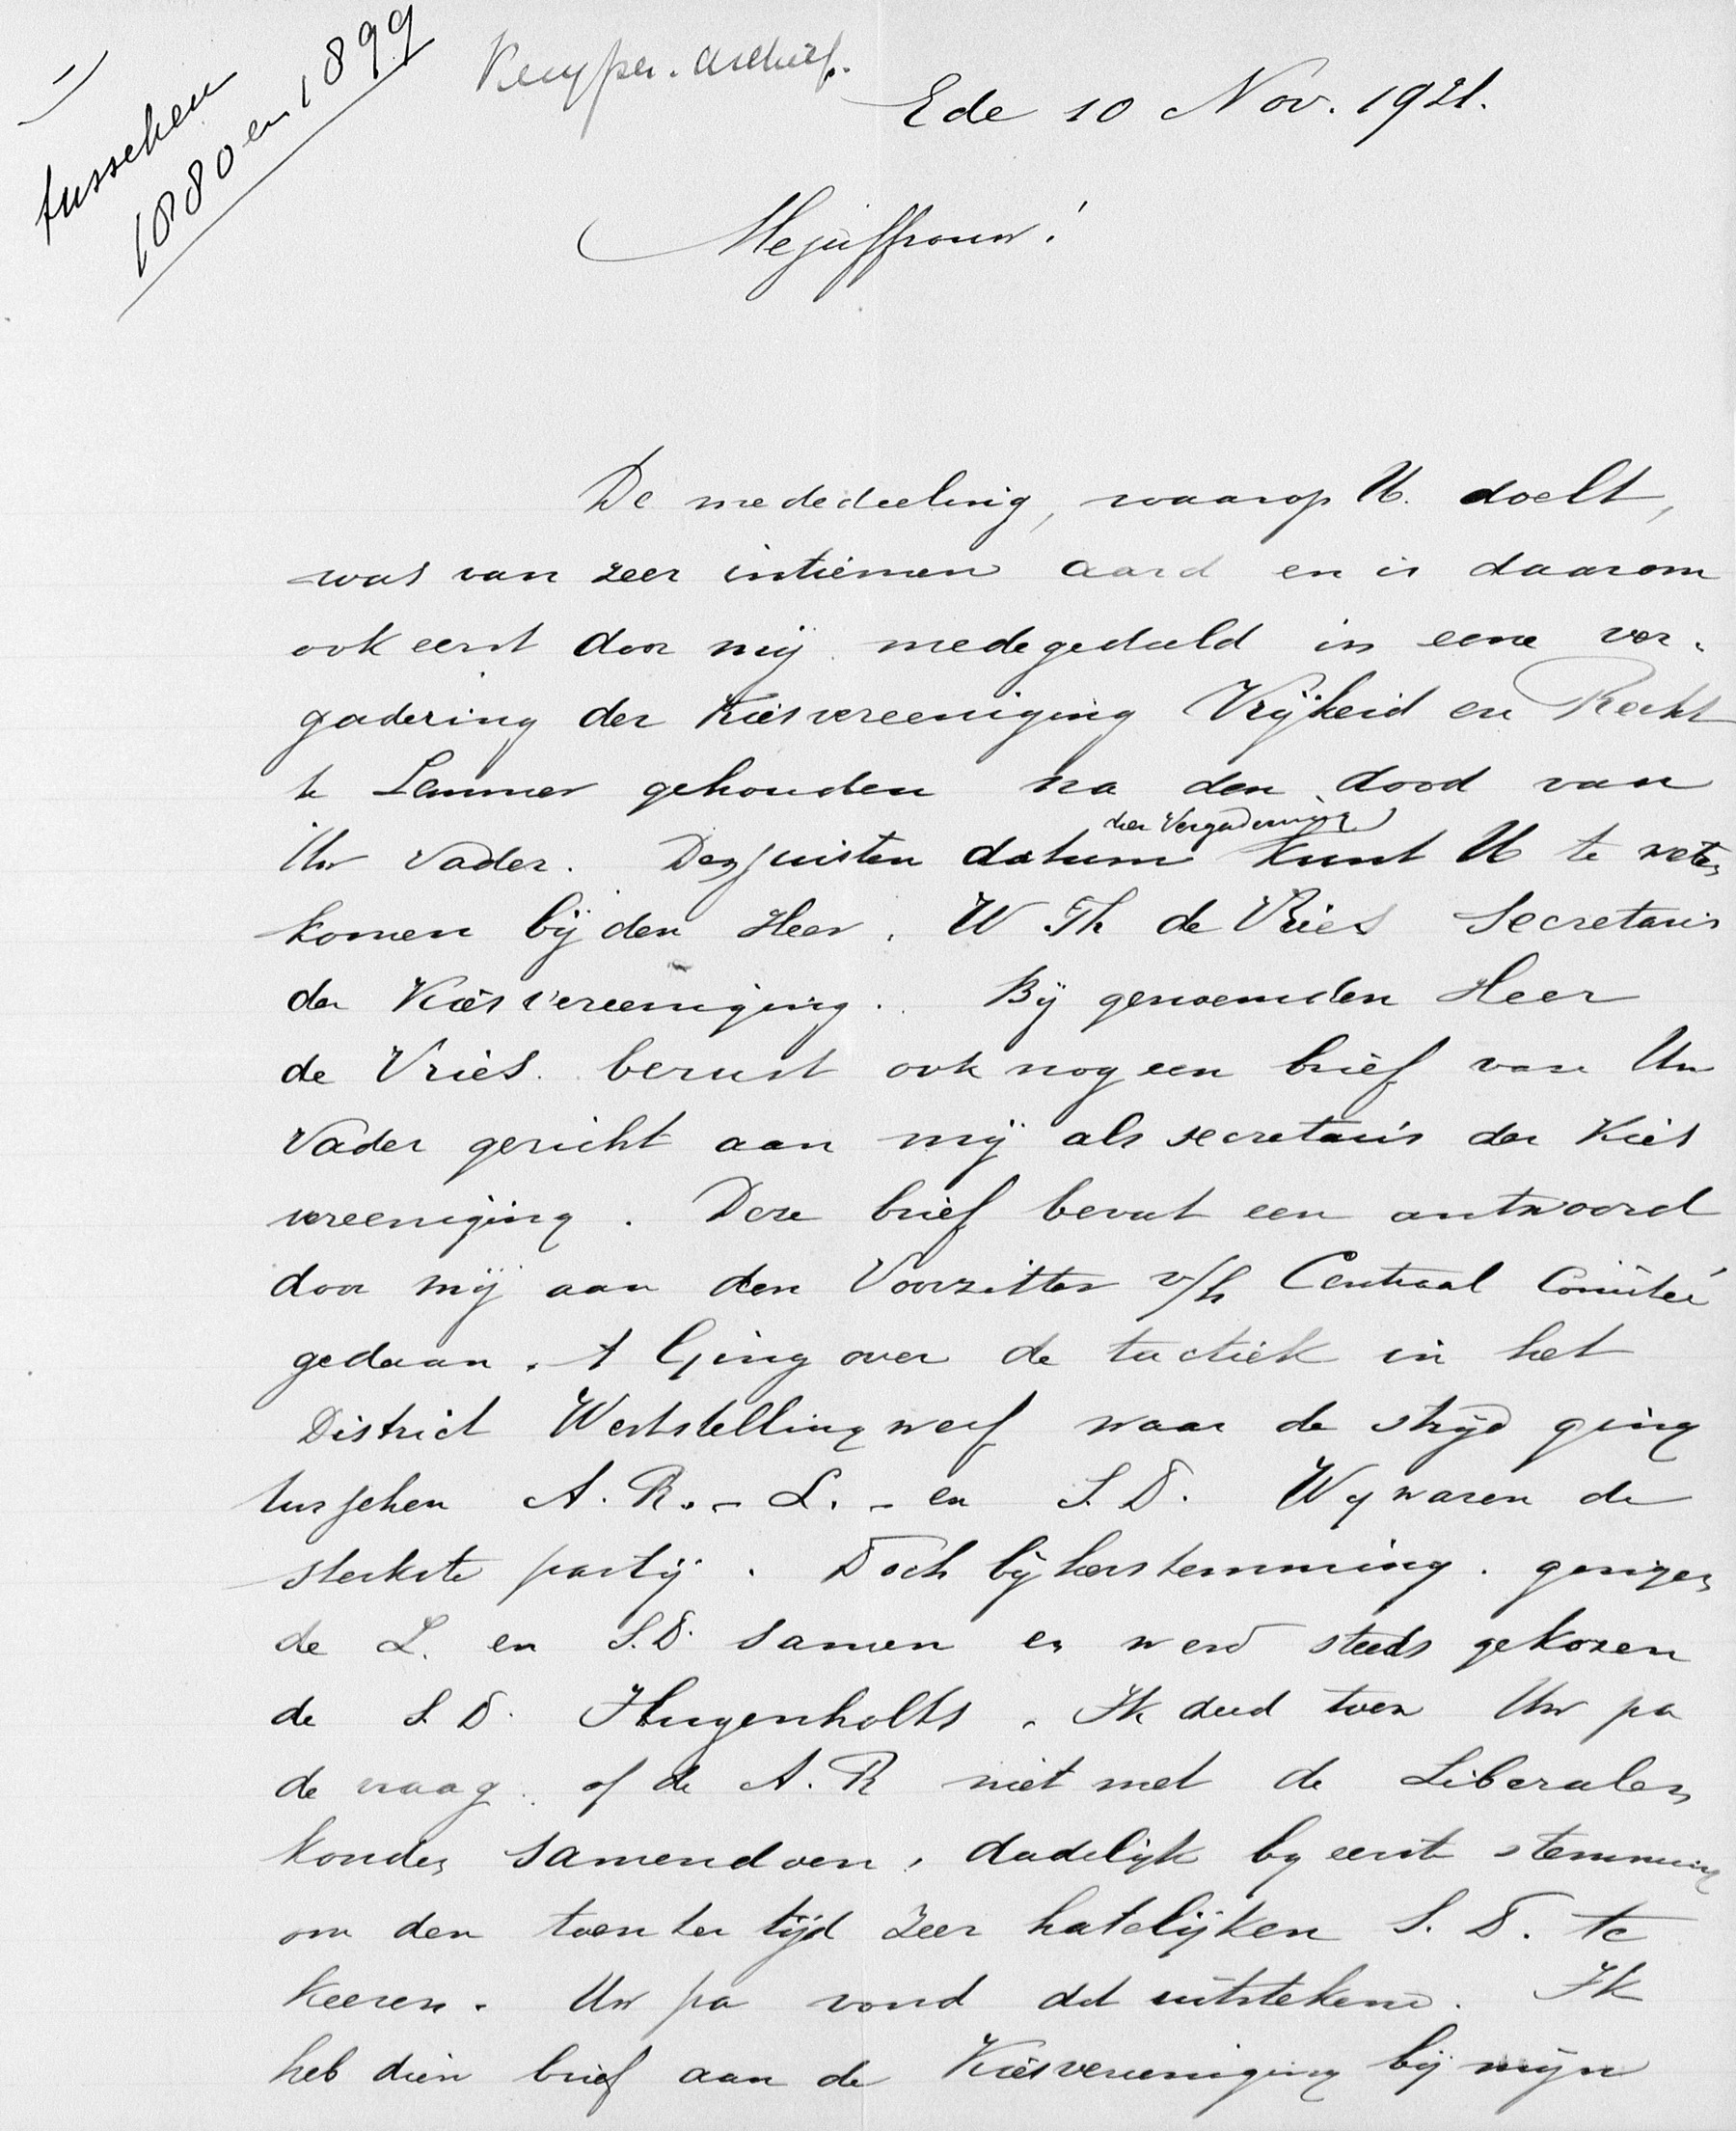 tusschen
1880 en 1899
Kuyper-Archief.
Ede 10 Nov. 1921.
Mejuffrouw!
De mededeeling, waarop U. doelt,
was van zeer intiemen aard en is daarom
ook eerst door mij medegedeeld in eene ver-
gadering der Kiesvereeniging Vrijheid en Recht
te Lemmer gehouden na den dood van
der Vergadering
Uw vader. Den juisten datum kunt U te weten
komen bij den Heer. W Th de Vries Secretaris
der Kiesvereeniging. Bij genoemden Heer
de Vries. berust ook nog een brief van Uw
Vader gericht aan mij als secretaris der Kies
vereeniging. Deze brief bevat een antwoord
door mij aan den Voorzitter v/h Centraal Comité
gedaan. 't Ging over de tactiek in het
District Weststellingwerf waar de strijd ging
tusschen A. R. - L. - en S. D. Wij waren de
sterkste partij. Doch bij herstemming. gingen
de L. en S.D. samen en werd steeds gekozen
de S. D. Hugenholts. Ik deed toen Uw pa
de vraag. of de A. R niet met de Liberalen
konden samendoen, dadelijk by eerste stemming
om den toen ter tijd zeer hatelijken S. D. te
keeren. Uw pa vond dit uitstekend. Ik
heb dien brief aan de Kiesvereeniging bij mijn